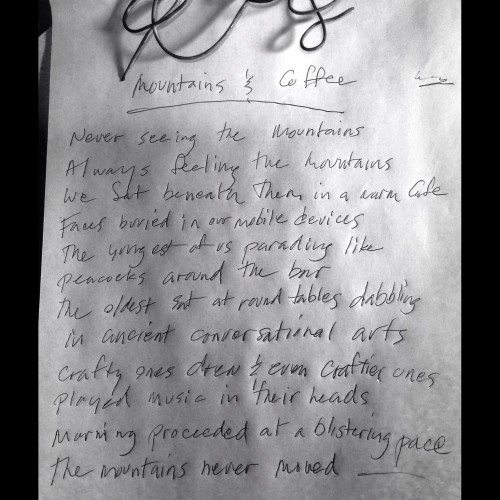 Mountains & Coffee
Never seeing the mountains
Always feeling the mountains
We sat beneath them in a warm Cafe
Faces buried in our mobile devices
The youngest of us parading like
peacocks around the bar
the oldest sat at round tables dabbling
in ancient conversational arts
Crafty ones drew & even craftier ones
played music in their heads
Morning proceeded at a blistering pace
the mountains never moved